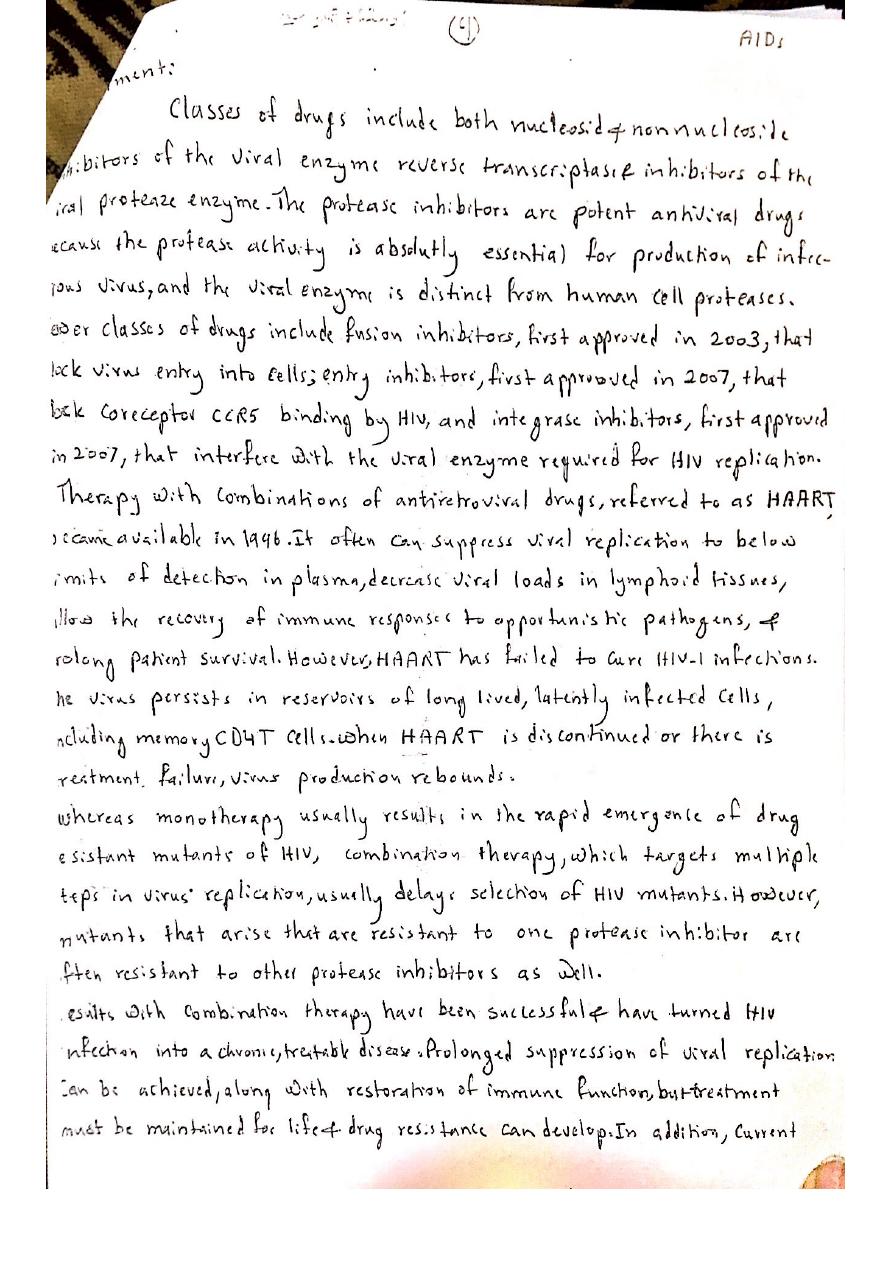 4
AIDs
ment:
Classes of drugs include both nucleosid & nonnucleoside
hibitors of the viral enzyme reverse transcriptase & inhibitors of the
iral protease enzyme. The protease inhibitors are potent antiviral drugs
ecause the protease activity is absolutly essential for production of infec-
ious virus, and the viral enzyme is distinct from human cell proteases.
ewer classes of drugs include fusion inhibitors, first approved in 2003, that
lock virus entry into cells; entry inhibitors, first approved in 2007, that
lock coreceptor CCR5 binding by HIV, and integrase inhibitors, first approved
in 2007, that interfere with the viral enzyme required for HIV replication.
Therapy with combinations of antiretroviral drugs, referred to as HAART,
ecame available in 1996. It often can suppress viral replication to below
imits of detection in plasma, decrease viral loads in lymphoid tissues,
llow the recovery of immune responses to opportunistic pathogens, &
rolong patient survival. However, HAART has failed to cure HIV-1 infections.
he virus persists in reservoirs of long lived, latently infected cells,
ncluding memory CD4 T cells. when HAART is discontinued or there is
reatment failure, virus production rebounds.
whereas monotherapy usually results in the rapid emergence of drug
esistant mutants of HIV, combination therapy, which targets multiple
teps in virus replication, usually delays selection of HIV mutants. However,
mutants that arise that are resistant to one protease inhibitor are
ften resistant to other protease inhibitors as well.
esults with combination therapy have been successful & have turned HIV
nfection into a chronic, treatable disease. Prolonged suppression of viral replication
can be achieved, along with restoration of immune function, but treatment
must be maintained for life & drug resistance can develop. In addition, current